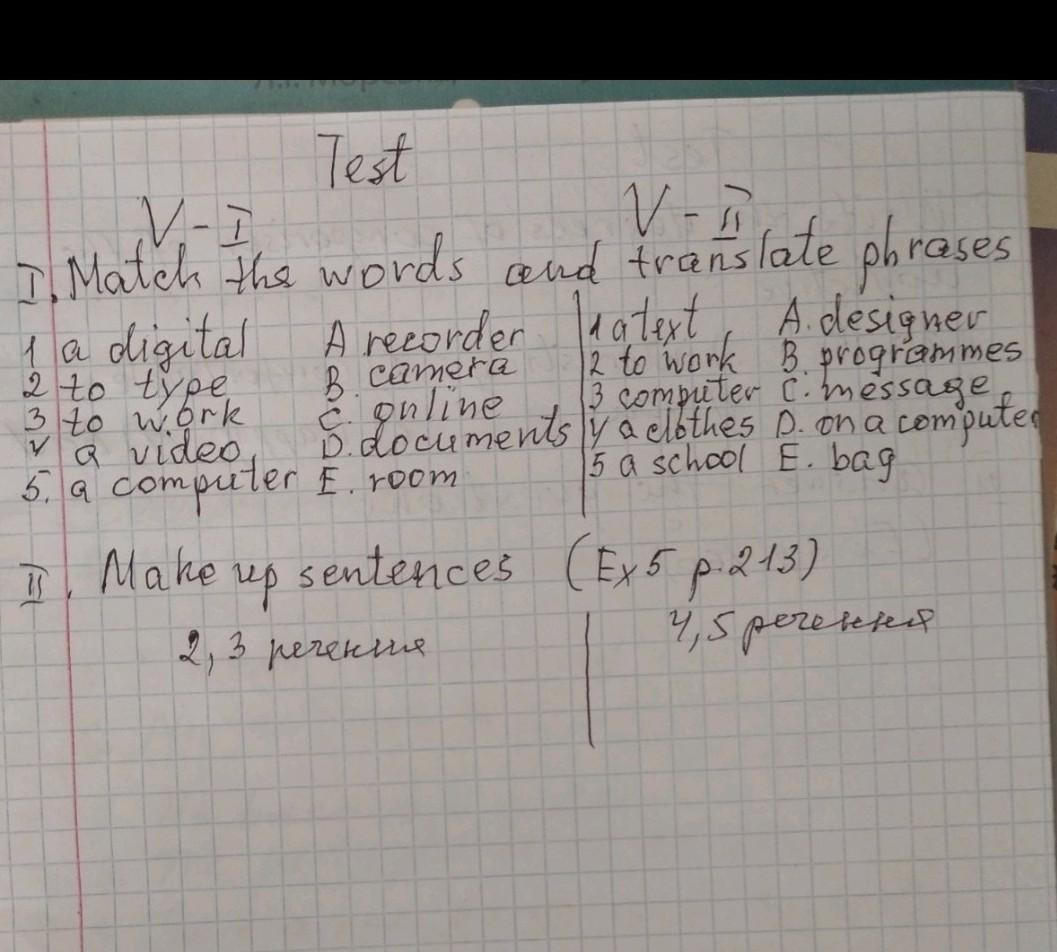 Test
V - I V - II
I. Match the words and translate phrases
1 a digital A recorder 1 a text A. designer
2 to type B. camera 2 to work B. programmes
3 to work C. online 3 computer C. message
4 a video D. documents 4 a clothes D. on a computer
5. a computer E. room 5 a school E. bag
II. Make up sentences (Ex 5 p. 213)
2, 3 речення 4, 5 речення